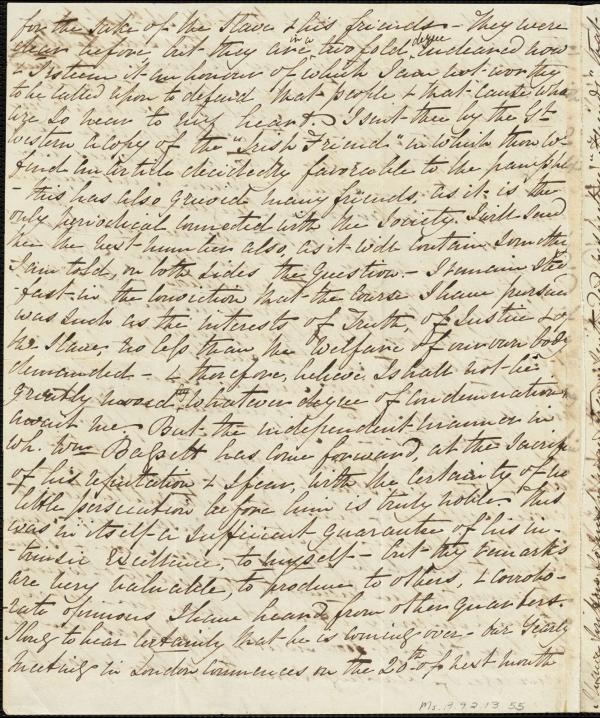 for the sake of the Slave & his friends - They were
dear before but they are in twofold degree endeared now
- I esteem it an honour of which I am not worthy
to be called upon to defend that people & that cause who
are so near to my heart. I sent thee by the Gt
Western a copy of the "Irish Friend" in which thou wilt
find an article decidedly favorable to the pamphlet
- this has also grieved many friends, as it is the
only periodical connected with the Society. I will send
thee the next number also, as it will contain something
I am told, on both sides the question. - I remain sted-
fast in the conviction that the course I have pursued
was such as the interests of Truth, of Justice & of
the Slave, no less than the welfare of our own body
demanded - & therefore, believe I shall not be
greatly moved whatever degree of condemnation
await me But the independent manner in
wh. Wm Bassett has come forward, at the sacrifice
of his reputation & I fear, with the certainty of no
little persecution before him is truly noble. This
was in itself a sufficient guarantee of his in-
-trinsic excellence, to myself - but thy remarks
are very valuable, to produce to others, & corrobo-
-rate opinions I have heard from other quarters.
I long to hear certainly that he is coming over - our Yearly
Meeting in London commences on the 20th of next month
Ms. A. 9. 2. 13. 55